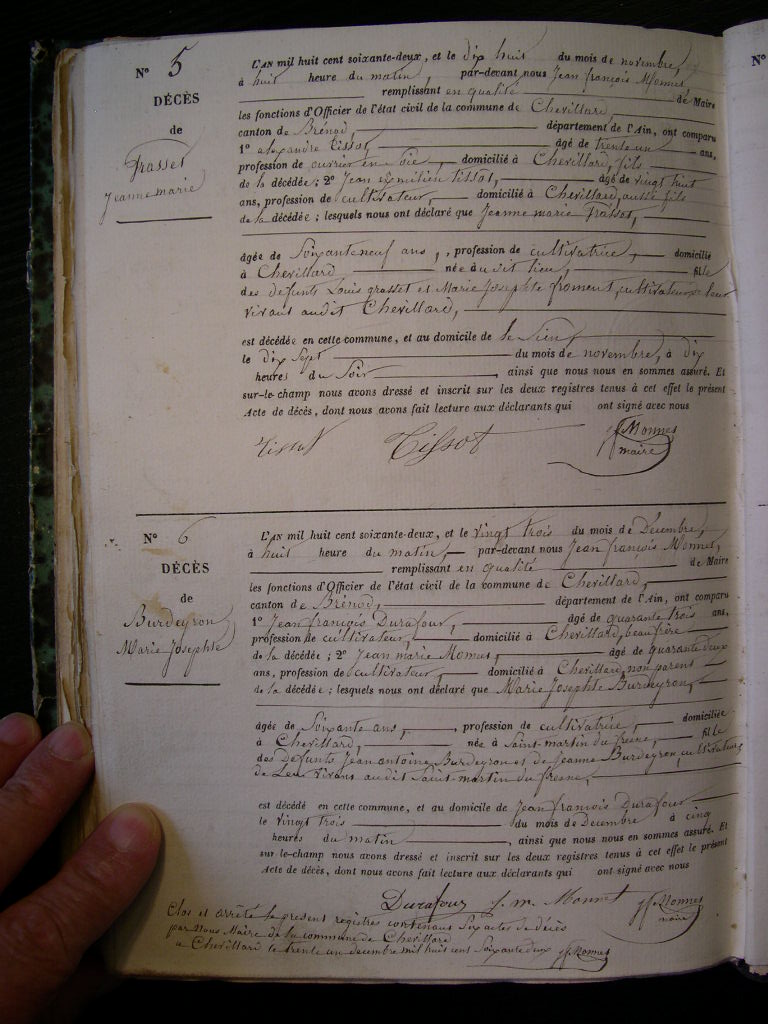 N° 5
DÉCÈS
de
Grasset
Jeanne marie
L'AN mil huit cent soixante-deux, et le dix huit du mois de novembre,
à huit heure du matin, par-devant nous Jean françois Monnet
remplissant en qualité de Maire
les fonctions d'Officier de l'état civil de la commune de Chevillard,
canton de Brénod, département de l'Ain, ont comparu
1° alexandre tissot, âgé de trente un ans,
profession de ouvrier en Soie, domicilié à Chevillard, fils
de la décédée ; 2° Jean tissot, âgé de vingt huit
ans, profession de cultivateur, domicilié à Chevillard, aussi fils
de la décédée ; lesquels nous ont déclaré que Jeanne marie Grasset,
âgée de Soixante neuf ans, profession de cultivatrice, domicilié
à Chevillard née audit lieu, fille
des defunts Louis grasset et Marie Josephte froment, cultivateurs de leur
vivans audit Chevillard,
est décédée en cette commune, et au domicile de le Sien
le dix Sept du mois de novembre, à dix
heures du Soir, ainsi que nous nous en sommes assuré. Et
sur-le-champ nous avons dressé et inscrit sur les deux registres tenus à cet effet le présent
Acte de décès, dont nous avons fait lecture aux déclarants qui ont signé avec nous
Tissot Tissot jf Monnet
maire
N° 6
DÉCÈS
de
Burdeyron
Marie Josephte
L'AN mil huit cent soixante-deux, et le vingt trois du mois de Decembre,
à huit heure du matin, par-devant nous Jean françois Monnet,
remplissant en qualité de Maire
les fonctions d'Officier de l'état civil de la commune de Chevillard,
canton de Brénod, département de l'Ain, ont comparu
1° Jean françois Durafour, âgé de quarante trois ans,
profession de cultivateur, domicilié à Chevillard, beau frère
de la décédée ; 2° Jean marie Monnet, âgé de quarante deux
ans, profession de cultivateur, domicilié à Chevillard, non parent
de la décédée ; lesquels nous ont déclaré que Marie Josephte Burdeyron,
âgée de Soixante ans, profession de cultivatrice, domiciliée
à Chevillard, née à Saint-martin du fresne, fille
des Defunts Jean antoine Burdeyron et de Jeanne Burdeyron, cultivateurs
de Leur vivans audit Saint-martin du fresne,
est décédé en cette commune, et au domicile de Jean francois Durafour
le vingt trois du mois de Decembre à cinq
heures du matin, ainsi que nous nous en sommes assuré. Et
sur-le-champ nous avons dressé et inscrit sur les deux registres tenus à cet effet le présent
Acte de décès, dont nous avons fait lecture aux déclarants qui ont signé avec nous
Durafour j. m. Monnet jf Monnet
maire
Clos et arrêté le present registre contenant Six actes de décès
par Nous Maire de la commune de Chevillard
a Chevillard le trente un decembre mil huit cent Soixante deux jf Monnet
N°